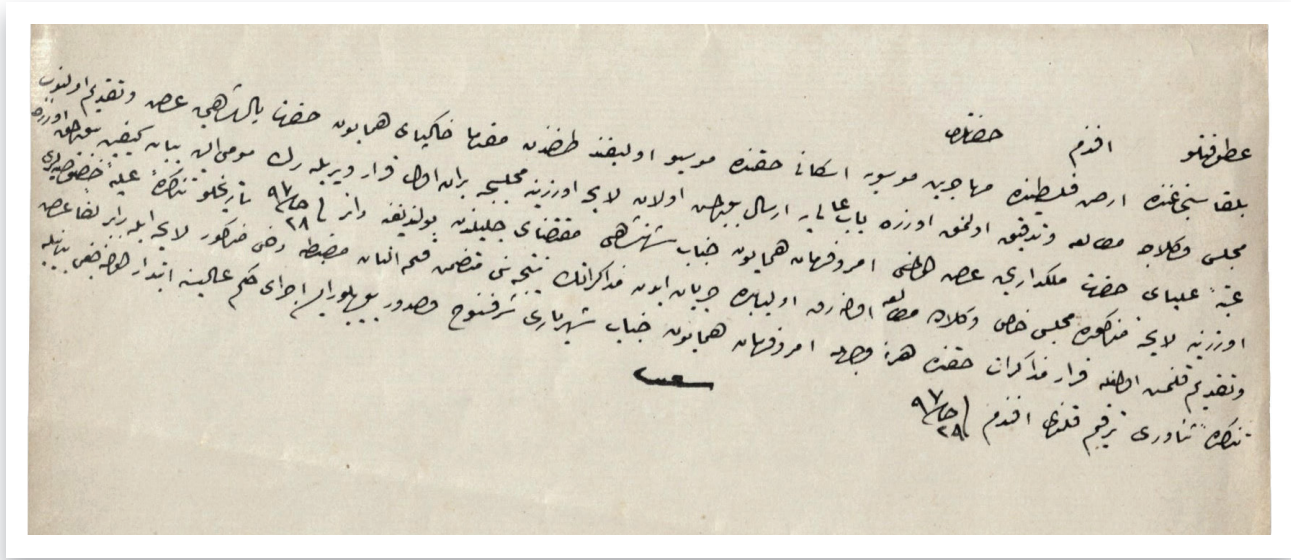 عطوفتلو افندم حضرتلری
بلقا سنجاغنده ارض فلسطينده مهاجرين موسويه اسكانی حقنده موسيو اوليفنت طرفندن مقدما خاكپای همايون حضرت پادشاهی يه عرض وتقديم اولنوب
مجلس وكلاجه مطالعه وتدقيق اولنمق اوزره باب عالی يه ارسال بيوريلمش اولان لايحه اوزرينه مجلسجه بر ان اول قرار ويريله رك مومی اليه بيان كيفيت اوزره
عتبه علیای حضرت ملكداری يه عرض اولنمسی امر وفرمان همايون جناب شهنشاهی مقتضای جليلندن بولنديغنه دائر ٢٨ ٩٧ تاريخلو تذكره عليه
اوزرينه لايحه مذكوره مجلس خاص وكلاده مطالعه اولنه رق اوليابده جريان ايدن مذاكراتك نتيجه سنی متضمن قلمه النان مضبطه دخی مذكور لايحه ايله برابر لفا عرض
وتقديم قلنمش اولمغله قرار مذاكرات حقنده هر نه وجهله امر وفرمان همايون جناب شهرياری شرفسنوح وصدور بيوريلور ايسه اجرای حكم عاليسنه ابتدار
تذكره ثناوری ترقيم قلندی افندم ٢٩ ٩٧